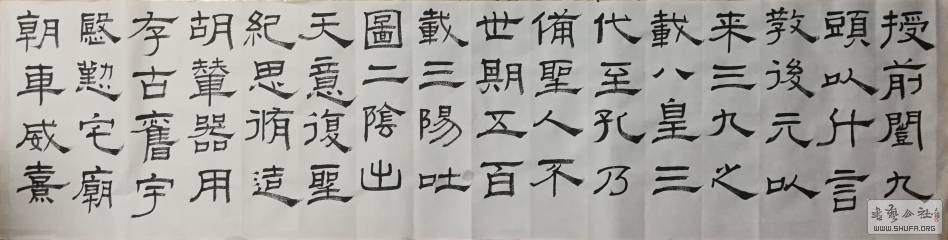 授前闓九
頭以什言
教後元以
来三九之
載八皇三
代至孔乃
備聖人不
世期五百
載三陽吐
圖二陰出
天意復聖
紀思脩造
胡輦器用
存古舊宇
慇懃宅廟
朝車威熹
書藝公社
WWW.SHUFA.ORG